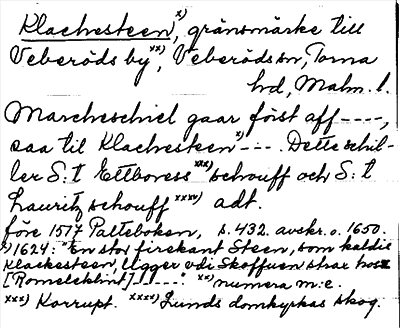 Klachesteen x), gränsmärke till
Veberöds by xx), Veberöds sn, Torna
hd, Malm. l.
Marcheschiel gaar först aff ----,
saa til Klachesteen x) --- . Dette schil-
ler S:t Ettboress xxx) schouff och S:t
Lauritz schouff xxxx) adt.
före 1517 Palteboken, s. 432. avskr. o. 1650.
x) 1624: "En stor firekant Steen, som kaldis
Klackesteen, ligger vdi Skoffuen strax hoss
[Romeleklint] -----." xx) numera m:e.
xxx) Korrupt. xxxx) Lunds domkyrkas skog.